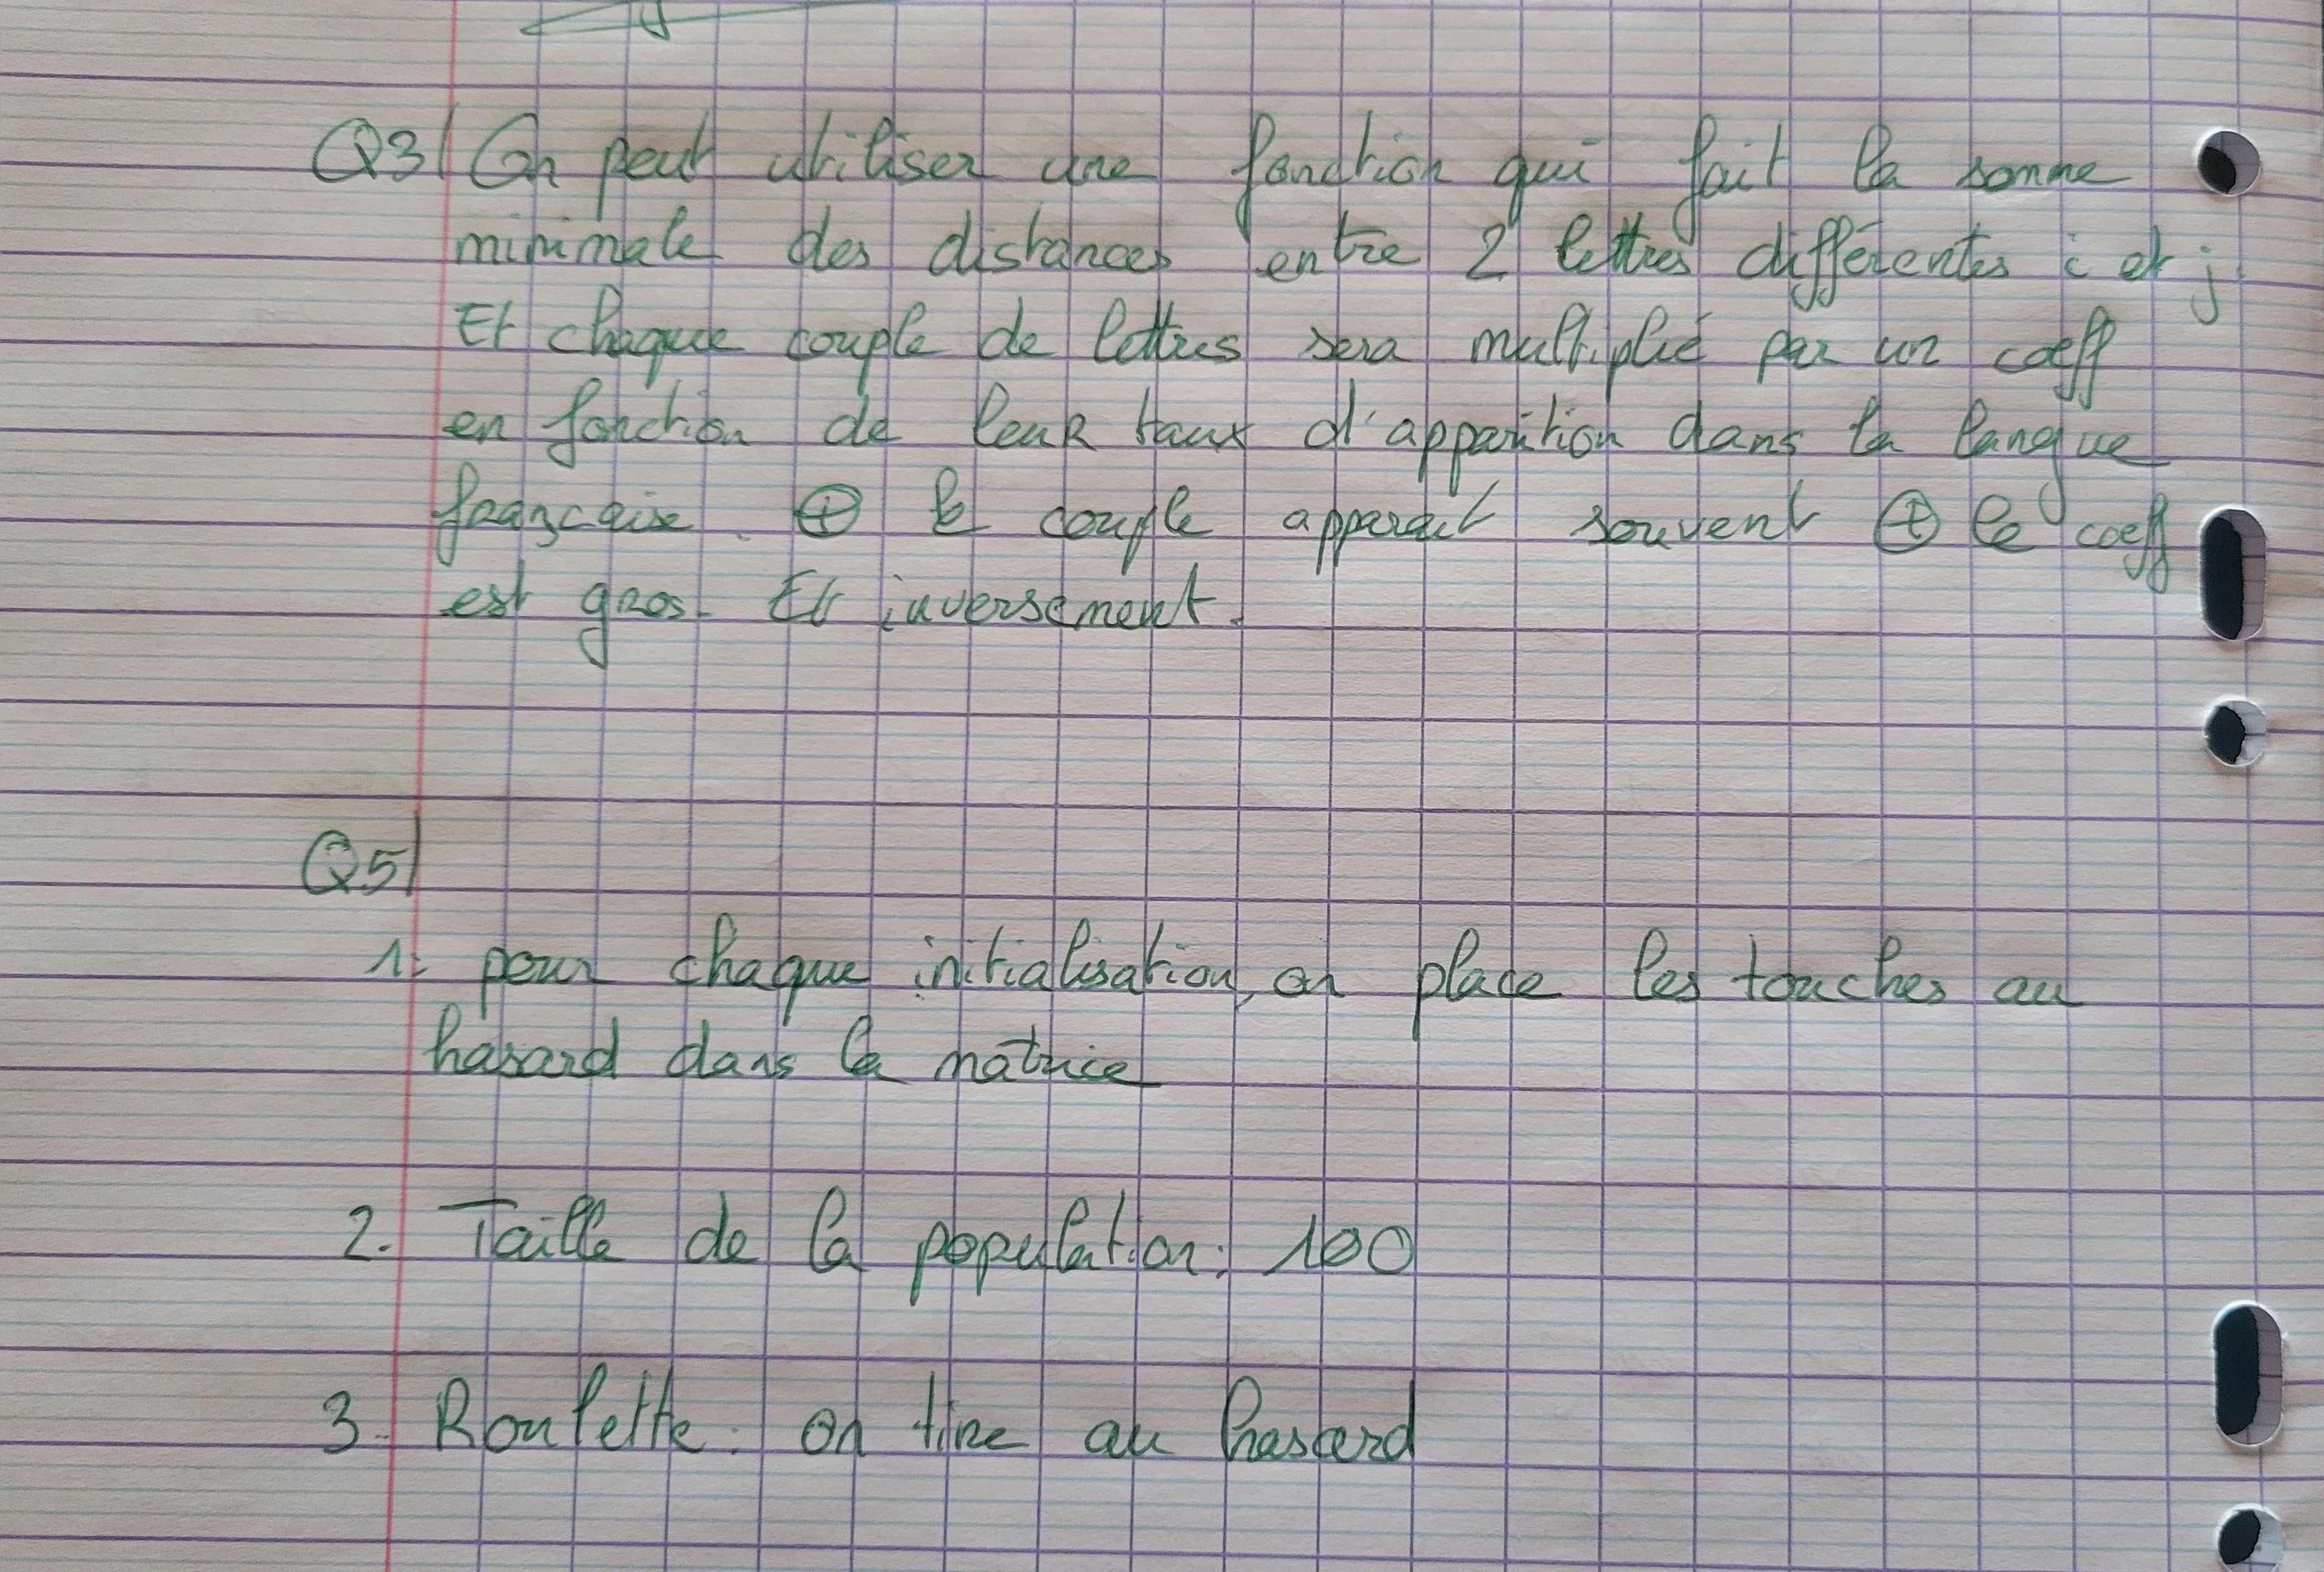 Q3/ On peut utiliser une fonction qui fait la somme
minimale des distances entre 2 lettres différentes i et j.
Et chaque couple de lettres sera multiplié par un coeff
en fonction de leur taux d'apparition dans la langue
française. ⊕ le couple apparait souvent ⊕ le coeff
est gros. Et inversement.
Q5/
1. pour chaque initialisation, on place les touches au
hasard dans la matrice
2. Taille de la population : 100
3. Roulette : on tire au hasard